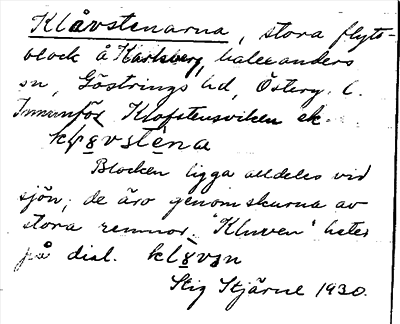 Klåvstenarna, stora flytt-
block å Karlsberg, Kalexanders
sn, Göstrings hd, Österg. l.
Innanför Klofstensviken ek.
klåvstena
Blocken ligga alldeles vid
sjön; de äro genomskurna av
stora remnor. "Kluven" heter
på dial. klåvən
Stig Stjärne 1930.